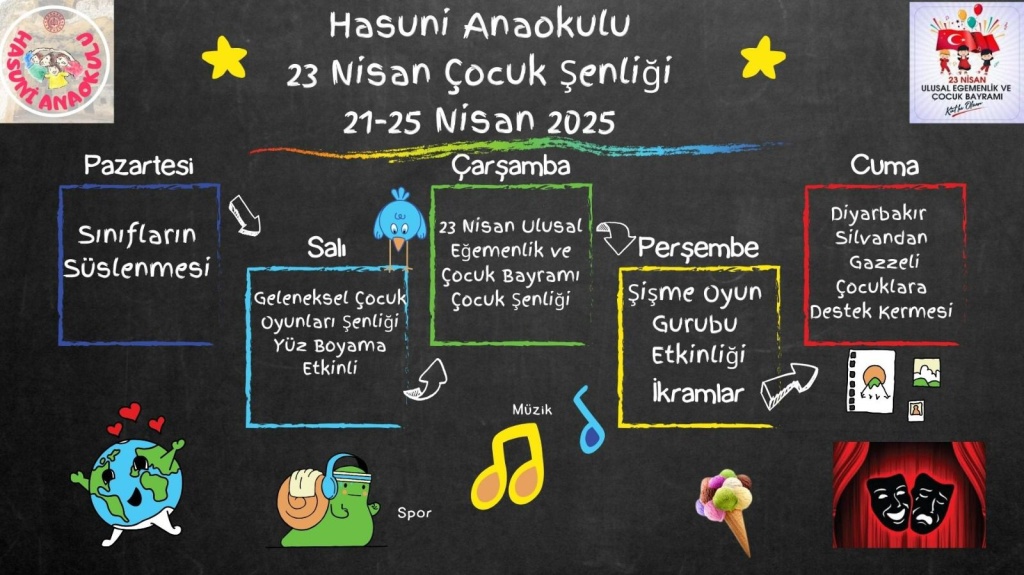 HASUNİ ANAOKULU
Hasuni Anaokulu
23 Nisan Çocuk Şenliği
21-25 Nisan 2025
23 NİSAN
ULUSAL EGEMENLİK VE
ÇOCUK BAYRAMI
Kutlu Olsun
Pazartesi
Sınıfların
Süslenmesi
Salı
Geleneksel Çocuk
Oyunları Şenliği
Yüz Boyama
Etkinli
Çarşamba
23 Nisan Ulusal
Eğemenlik ve
Çocuk Bayramı
Çocuk Şenliği
Perşembe
Şişme Oyun
Gurubu
Etkinliği
İkramlar
Cuma
Diyarbakır
Silvandan
Gazzeli
Çocuklara
Destek Kermesi
Müzik
Spor